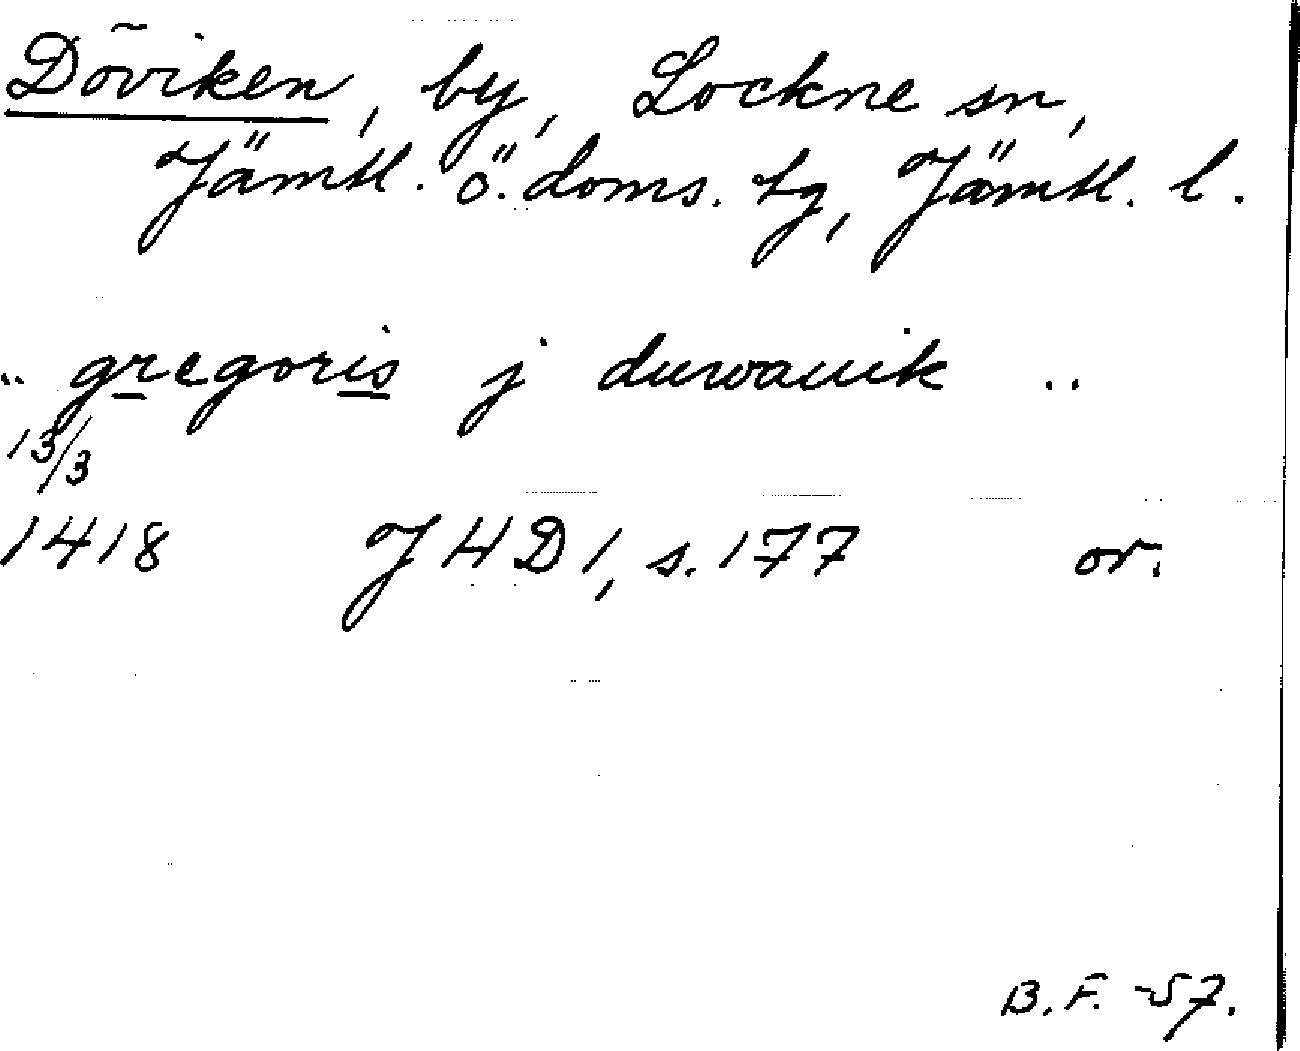 Döviken, by, Lockne sn,
Jämtl. ö. doms. tg, Jämtl. l.
.. gregoris j duwauik ..
13/3
1418 JHD 1, s. 177 or.
B. F. -57.